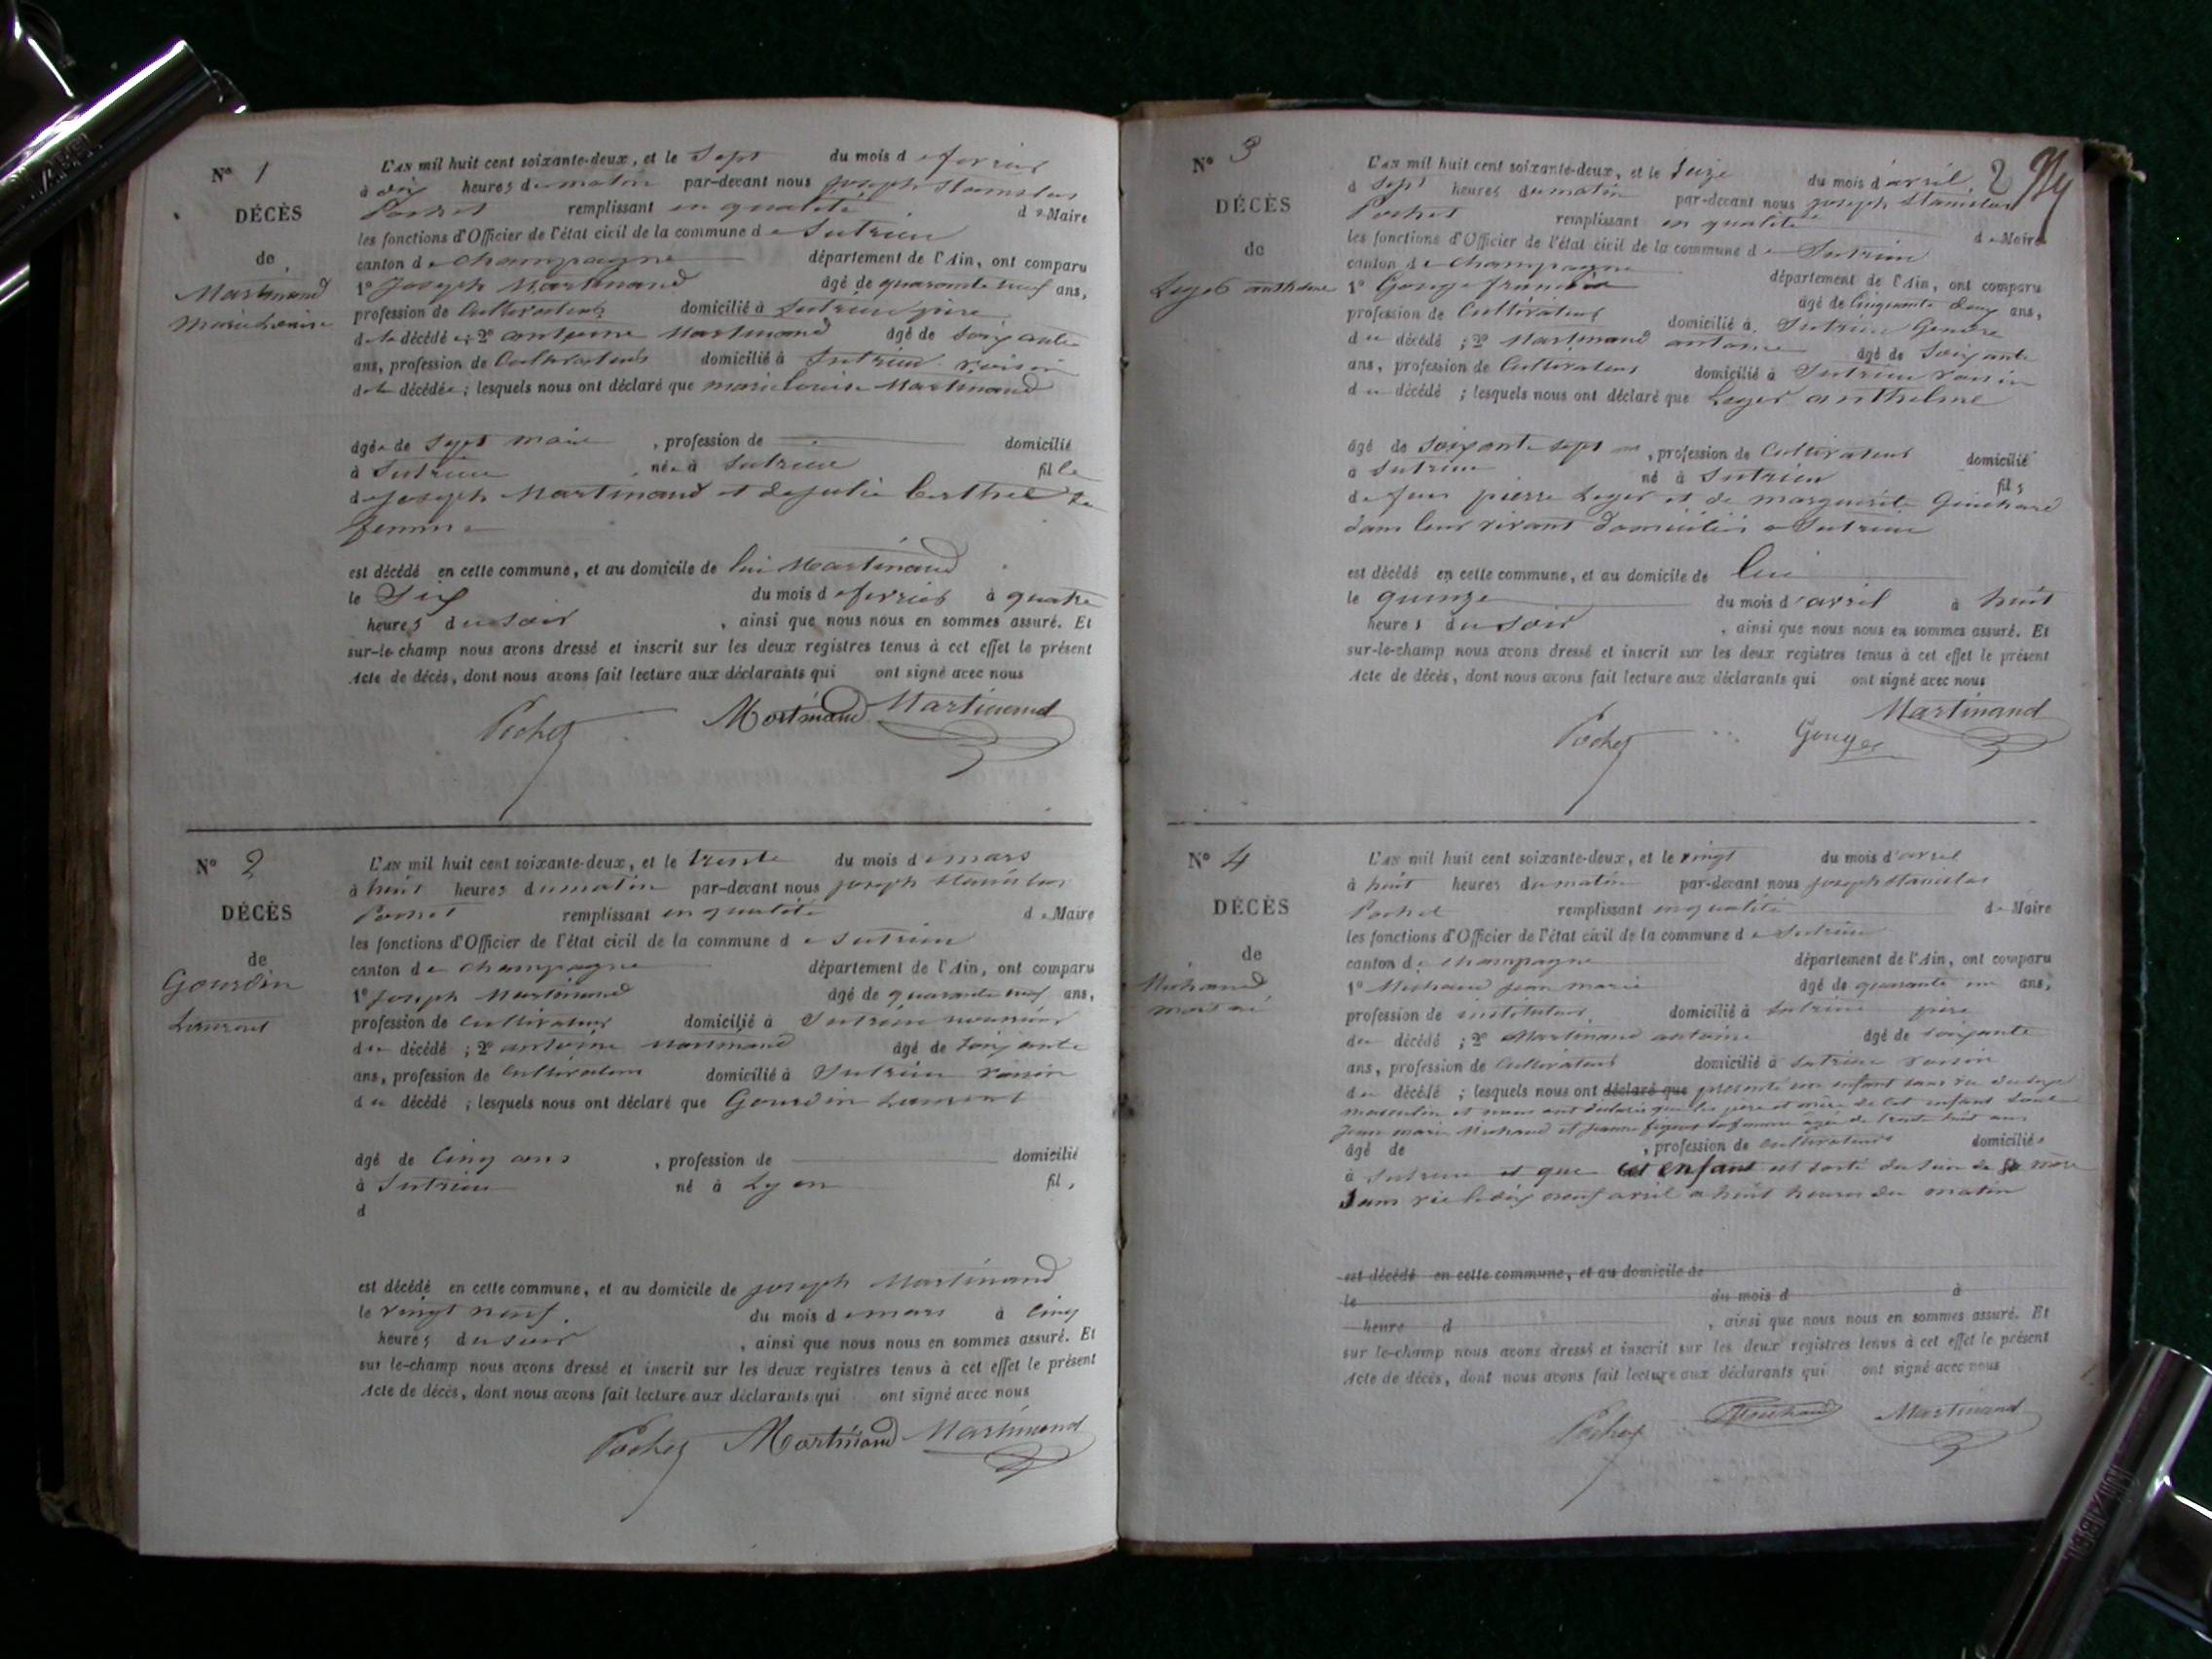 N° 1
DÉCÈS
de
Martinand
Marie Louise
L'AN mil huit cent soixante-deux, et le Sept du mois de fevrier
à dix heures du matin par-devant nous joseph Stanislas
Pochet remplissant en qualité de Maire
les fonctions d'Officier de l'état civil de la commune de Sutrieu
canton de Champagne département de l'Ain, ont comparu
1° Joseph Martinand âgé de quarante neuf ans,
profession de Cultivateur domicilié à Sutrieu père
de la décédée; 2° antoine Martinand âgé de Soixante
ans, profession de Cultivateur domicilié à Sutrieu voisin
de la décédée; lesquels nous ont déclaré que marie louise Martinand
âgée de Sept mois, profession de domicilié
à Sutrieu née à Sutrieu fille
de joseph Martinand et de julie Berthet Sa
femme
est décédé en cette commune, et au domicile de lui Martinand
le Six du mois de fevrier à quatre
heures du soir, ainsi que nous nous en sommes assuré. Et
sur-le-champ nous avons dressé et inscrit sur les deux registres tenus à cet effet le présent
Acte de décès, dont nous avons fait lecture aux déclarants qui ont signé avec nous
Pochet Martinand Martinand
N° 2
DÉCÈS
de
Gourdin
Laurent
L'AN mil huit cent soixante-deux, et le trente du mois de mars
à huit heures du matin par-devant nous joseph stanislas
Pochet remplissant en qualité de Maire
les fonctions d'Officier de l'état civil de la commune de Sutrieu
canton de Champagne département de l'Ain, ont comparu
1° Joseph Martinand âgé de quarante neuf ans,
profession de Cultivateur domicilié à Sutrieu nourricier
du décédé; 2° antoine Martinand âgé de Soixante
ans, profession de Cultivateur domicilié à Sutrieu voisin
du décédé; lesquels nous ont déclaré que Gourdin Laurent
âgé de Cinq ans, profession de domicilié
à Sutrieu né à Lyon fils
d
est décédé en cette commune, et au domicile de joseph Martinand
le vingt neuf du mois de mars à Cinq
heures du soir, ainsi que nous nous en sommes assuré. Et
sur le-champ nous avons dressé et inscrit sur les deux registres tenus à cet effet le présent
Acte de décès, dont nous avons fait lecture aux déclarants qui ont signé avec nous
Pochet Martinand Martinand
2
N° 3
DÉCÈS
de
Leger anthelme
L'AN mil huit cent soixante-deux, et le Seize du mois d'avril
à Sept heures du matin par-devant nous joseph Stanislas
Pochet remplissant en qualité de Maire
les fonctions d'Officier de l'état civil de la commune de Sutrieu
canton de Champagne département de l'Ain, ont comparu
1° Gouge francois âgé de Cinquante deux ans,
profession de Cultivateur domicilié à Sutrieu Gendre
du décédé; 2° Martinand antoine âgé de Soixante
ans, profession de Cultivateur domicilié à Sutrieu voisin
du décédé; lesquels nous ont déclaré que Leger anthelme
âgé de Soixante sept ans, profession de Cultivateur domicilié
à Sutrieu né à Sutrieu fils
de feu pierre Leger et de marguerite
dans leur vivant domiciliés a Sutrieu
est décédé en cette commune, et au domicile de lui
le quinze du mois d'avril à huit
heures du soir, ainsi que nous nous en sommes assuré. Et
sur-le-champ nous avons dressé et inscrit sur les deux registres tenus à cet effet le présent
Acte de décès, dont nous avons fait lecture aux déclarants qui ont signé avec nous
Pochet Gouge Martinand
N° 4
DÉCÈS
de
Michaud
mort né
L'AN mil huit cent soixante-deux, et le vingt du mois d'avril
à huit heures du matin par-devant nous joseph stanislas
Pochet remplissant en qualité de Maire
les fonctions d'Officier de l'état civil de la commune de Sutrieu
canton de champagne département de l'Ain, ont comparu
1° Michaud jean marie âgé de quarante un ans,
profession de instituteur domicilié à Sutrieu père
du décédé; 2° Martinand antoine âgé de soixante
ans, profession de Cultivateur domicilié à Sutrieu voisin
du décédé; lesquels nous ont déclaré que présenté un enfant sans vie du sexe
masculin et nous ont déclaré que les père et mère de cet enfant sont
jean marie Michaud et jeanne sa femme agée de trente huit ans
âgé de, profession de cultivateurs domiciliés
à Sutrieu et que cet enfant est sorti du sein de sa mère
Sans vie le dix neuf avril a huit heures du matin
est décédé en cette commune, et au domicile de
le du mois d à
heure d, ainsi que nous nous en sommes assuré. Et
sur le-champ nous avons dressé et inscrit sur les deux registres tenus à cet effet le présent
Acte de décès, dont nous avons fait lecture aux déclarants qui ont signé avec nous
Pochet Michaud Martinand